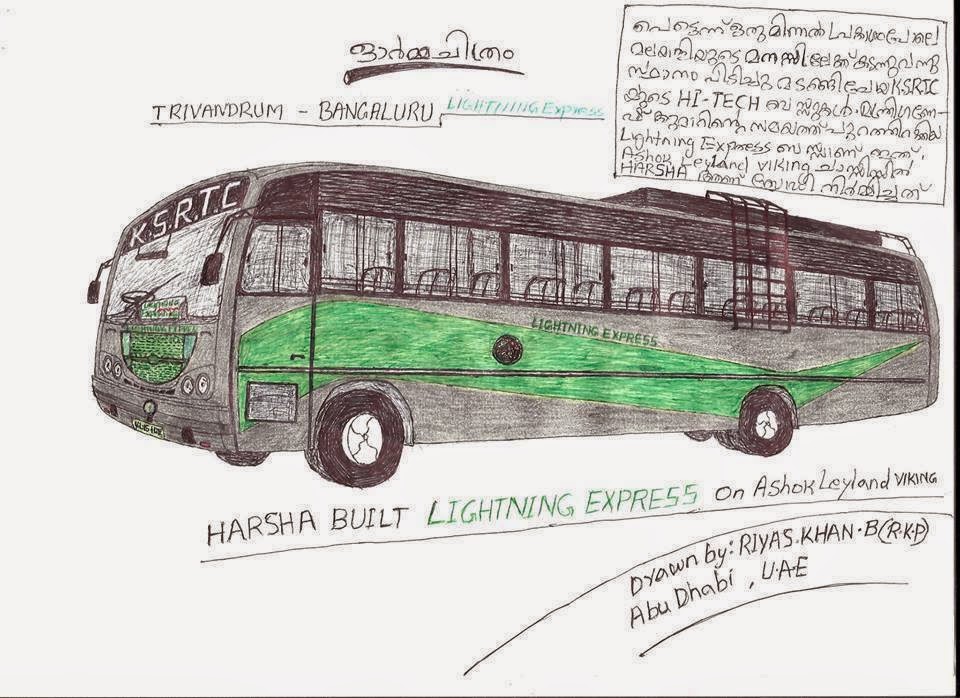 ഓർമ്മചിത്രം
TRIVANDRUM - BANGALURU LIGHTNING Express
പെട്ടെന്ന് ഒരു മിന്നൽ പ്രകാശംപോലെ
മലയാളിയുടെ മനസ്സിലേക്ക് കടന്നുവന്നു
സ്ഥാനം പിടിച്ചു മടങ്ങിപോയ KSRTC
യുടെ HI-TECH ബസ്സുകൾ. മന്ത്രി ഗണേ-
ഷ് കുമാറിന്റെ സമയത്ത് പുറത്തിറക്കിയ
Lightning Express ബസ്സാണ് ഇത്.
Ashok Leyland Viking ചാസ്സിസിൽ
HARSHA ആണ് ബോഡി നിർമ്മിച്ചത്
K.S.R.T.C
LIGHTNING
EXPRESS
LIGHTNING EXPRES
LIGHTNING EXPRESS
HARSHA BUILT LIGHTNING EXPRESS on Ashok Leyland VIKING
Drawn by: RIYAS.KHAN.B(R.K.P)
Abu Dhabi, U.A.E